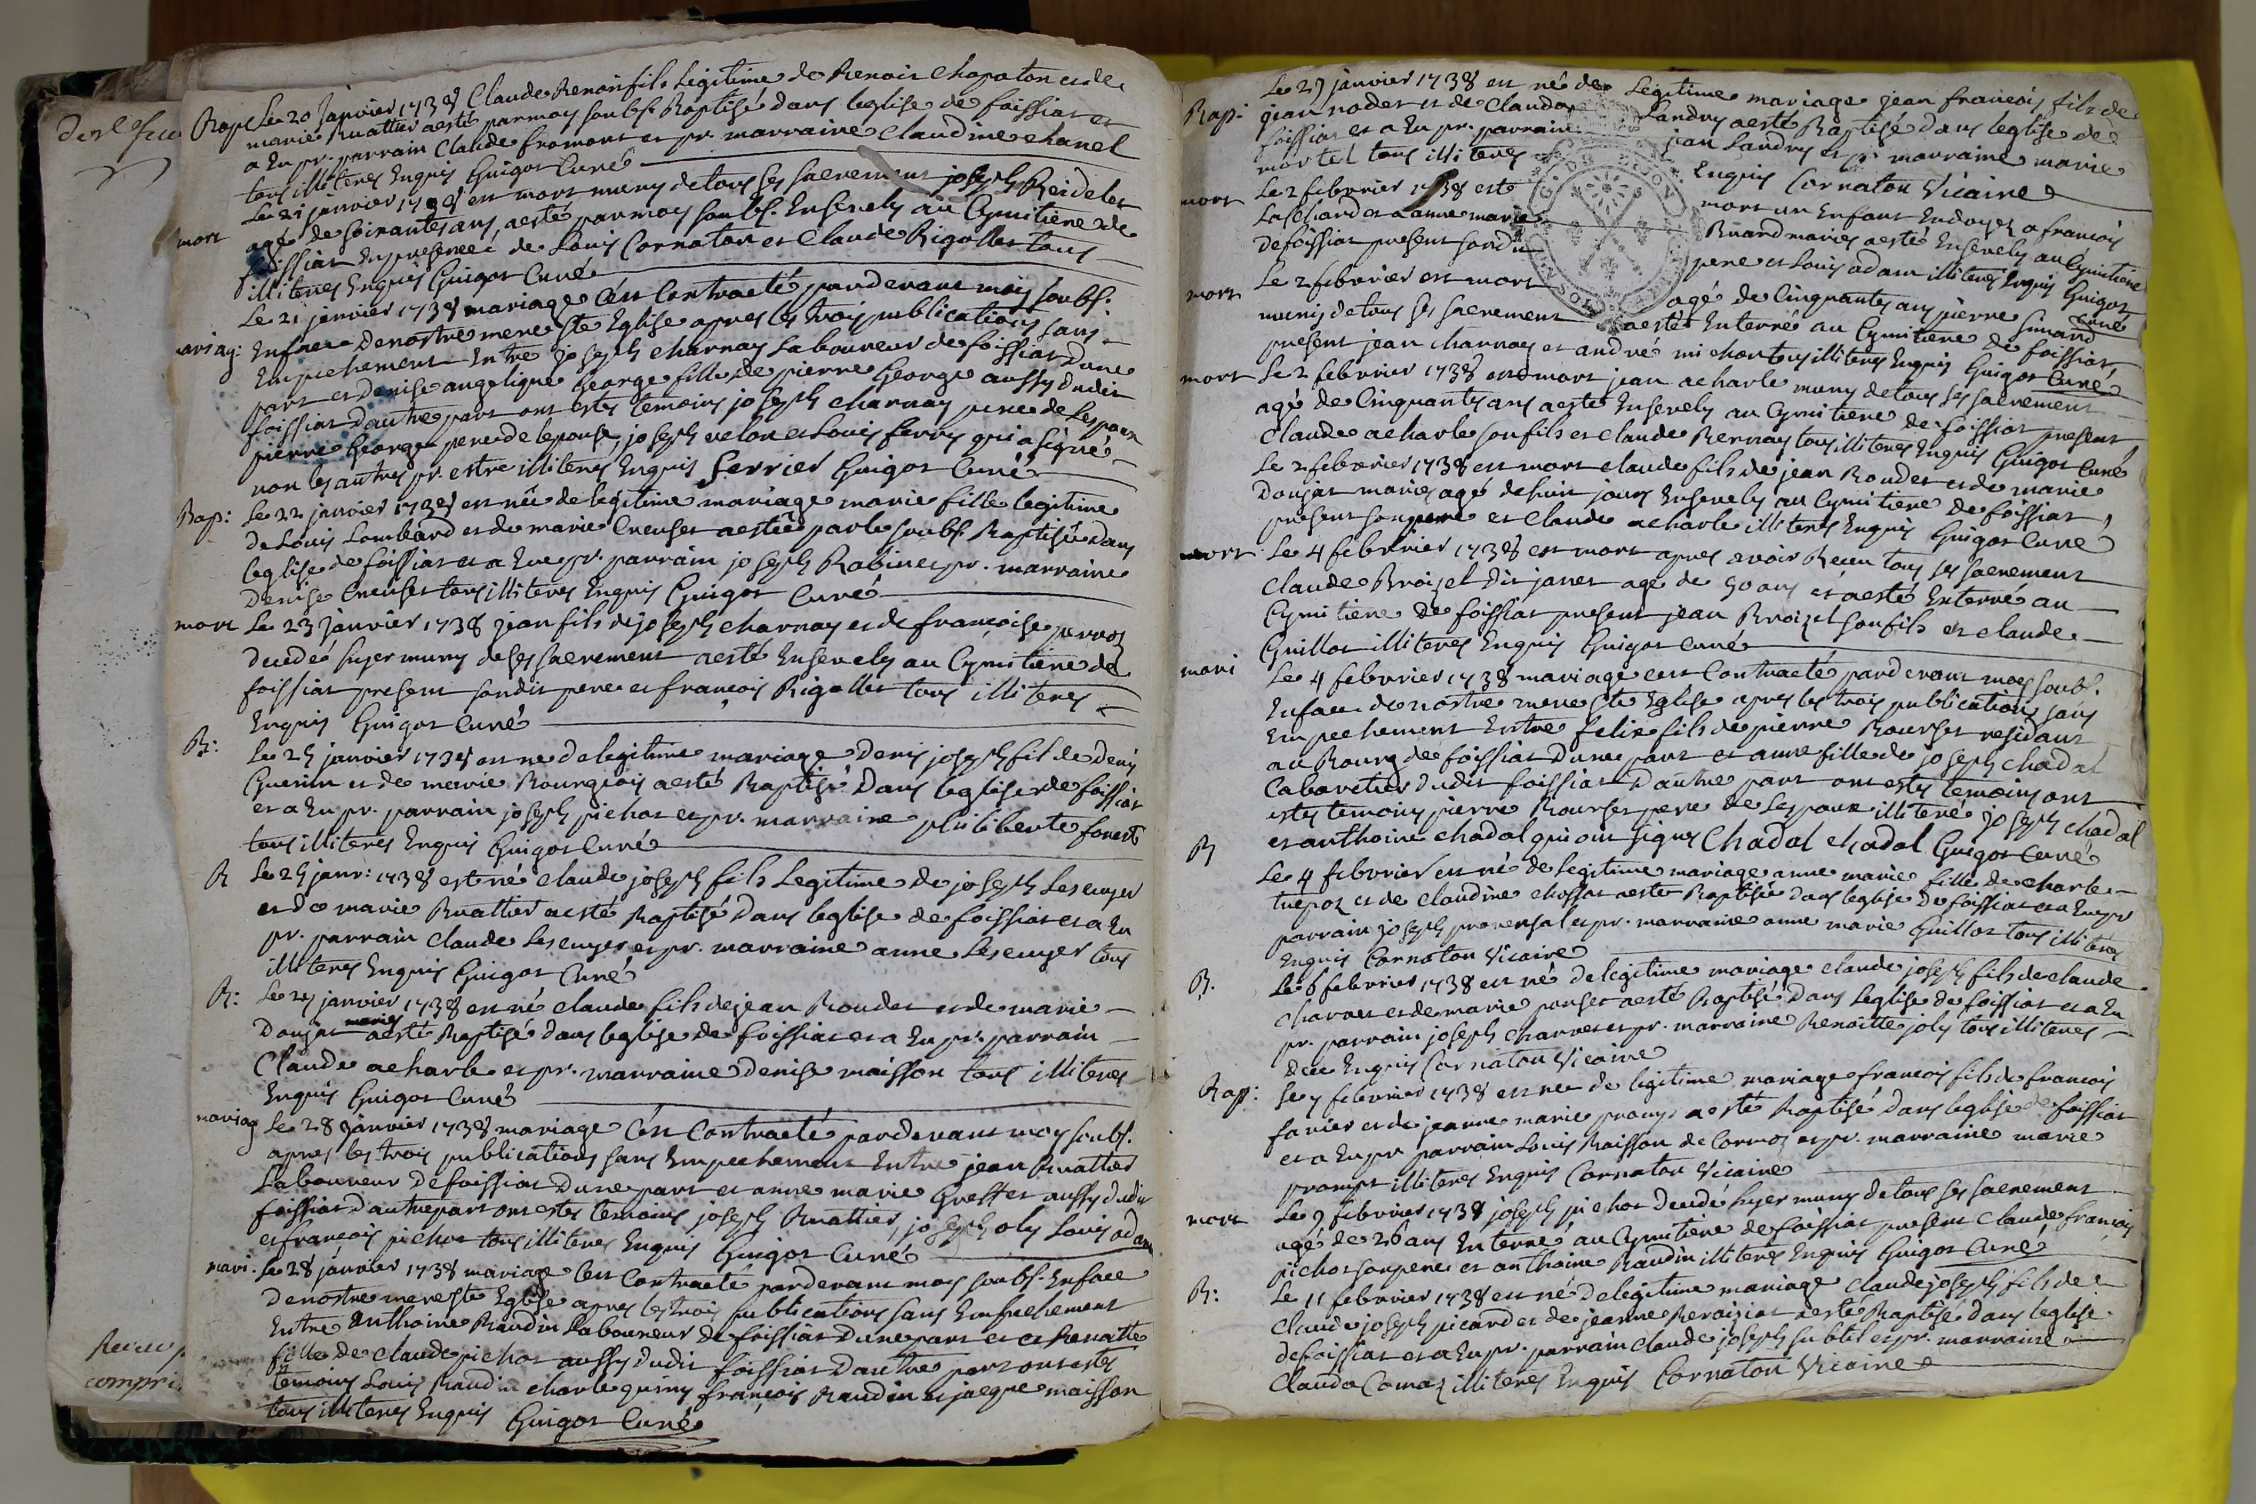 Bap Le 20 Janvier 1738 Claude Benoit fils Legitime de Benoit Chapaton et de
marie Buattier aesté parmoy soubs. Baptisé dans leglise de foissiat et
a Eu pr. parrain Claude fromont et pr. marraine Claudine chanel
tous illiteres Enquis Guigot Curé
mort Le 21 janvier 1738 est mort muny detous ses sacrement joseph Beidelet
agé de soixantes ans, aesté parmoy soubs. Ensevely au Cymitiere de
foissiat Enpresence de Louis Cornaton et Claude Rigollet tous
illiteres Enquis Guigot Curé
Le 21 janvier 1738 mariage C'est Contracté pardevant moy soubs.
ariag: Enface denostre mere ste Eglise apres les trois publications sans
Empechement Entre joseph charnay Laboureur de foissiat Dune
part et Denise angelique George fille de pierre George aussy dudit
foissiat Dautre part ont estes temoins joseph charnay pere de Lespoux
pierre George pere de lepouse, joseph velon et Louis ferry qui a signé
non les autres pr. estre illiteres Enquis ferrier Guigot Curé
Bap: Le 22 janvier 1738 est née de legitime mariage marie fille legitime
de Louis Lombard et de marie Creuset aesté par le soubs. Baptisée dans
leglise de foissiat et a Eue pr. parrain joseph Robin et pr. marraine
Denise Creuset tous illiteres Enquis Guigot Curé
mort Le 23 janvier 1738 jean fils de joseph charnay et de françoise perroz
decedé hyer muny de ses sacrement aesté Ensevely au Cymitiere de
foissiat present sondit pere et françois Rigollet tous illiteres
Enquis Guigot Curé
B: Le 25 janvier 1738 est ne de legitime mariage Denis joseph fil de Denis
Guerin et de marie Bourgeois aesté Baptisé Dans leglise de foissiat
et a Eu pr. parrain joseph pichot et pr. marraine philiberte forest
tous illiteres Enquis Guigot Curé
B Le 25 janv: 1738 est né claude joseph fils Legitime de joseph Lescuyer
et de marie Buattier aesté Baptisé Dans leglise de foissiat et a Eu
pr. parrain Claude Lescuyer et pr. marraine anne Lescuyer tous
illiteres Enquis Guigot Curé
B: Le 27 janvier 1738 est né claude fils de jean Boudet et de marie
Donjat mariés aesté Baptisé dans leglise de foissiat et a Eu pr. parrain
Claude acharle et pr. marraine Denise maisson tous illiteres
Enquis Guigot Curé
mariag Le 28 janvier 1738 mariage C'est Contracté pardevant moy soubs.
apres les trois publications sans Empechement Entre jean Buattier
Laboureur de foissiat Dune part et anne marie Greffet aussy dudit
foissiat Dautre part ont estes temoins joseph Buattier, joseph oly Louis adam
et françois pichot tous illiteres Enquis Guigot Curé
mari. Le 28 janvier 1738 mariage C'est Contracté pardevant moy soubs. Enface
de nostre mere ste Eglise apres les trois publications sans Empechement
Entre anthoine Baudin Laboureur de foissiat Dune part et et Benoitte
fille de claude pichot aussy dudit foissiat Dautre part ont estés
temoins Louis Baudin charle quiny françois Baudin et jacque maisson
tous illiteres Enquis Guigot Curé
Le 29 janvier 1738 est né de Légitime mariage jean françois fils de
Bap: jean nodet et de Claudo Landry aesté Baptisé dans leglise de
foissiat et a Eu pr. parrain jean Landry et pr marraine marie
mortel tous illiteres Enquis Cornaton Vicaire
mort Le 2 febvrier 1738 este mort un Enfant Endoyez a françois
Laschard et a anne marie Buand mariés aesté Ensevely au Cymitiere
de foissiat present sondit pere et Louis adam illiteres Enquis Guigot Curé
mort Le 2 febvrier est mort agé de Cinquantes ans pierre Simand
munis de tous ses sacrement aesté Enterré au Cymitiere de foissiat
present jean charnay et andré michon tous illiteres Enquis Guigot Curé
mort Le 2 febvrier 1738 est mort jean acharle muny de tous ses sacrement
agé de Cinquantes ans aesté Ensevely au Cymitiere de foissiat present
Claude acharle son fils et claude Bernay tous illiteres Enquis Guigot Curé
Le 2 febvrier 1738 est mort claude fils de jean Boudet et de marie
Donjat mariés agé dehuit jours Ensevely au Cymitiere de foissiat,
present son pere et Claude acharle illiteres Enquis Guigot Curé
mort Le 4 febvrier 1738 est mort apres avoir Receu tous ses sacrement
Claude Broizet dit janet agé de 50 ans et aesté Enterré au
Cymitiere de foissiat present jean Broizet son fils et claude
Guillot illiteres Enquis Guigot Curé
mari Le 4 febvrier 1738 mariage cest Contracté pardevant moy soubs.
Enface de nostre mere ste Eglise apres les trois publication sans
Empechement Entre felix fils de pierre Bourset residant
au Bourg de foissiat Dune part et anne fille de joseph chadal
Cabaretier dudit foissiat Dautre part ont estes temoins ont
estes temoins pierre Bourset pere de Lespoux illiteré joseph chadal
et anthoine chadal qui ont signes Chadal chadal Guigot Curé
B Le 4 febvrier est né de Legitime mariage anne marie fille de charle
tuepoz et de claudine chossat aesté Baptisée dans leglise de foissiat et a Eu pr
parrain joseph provensal et pr. marraine anne marie Guillot tous illiteres
Enquis Cornaton Vicaire
B. Le 6 febvrier 1738 est né de legitime mariage claude joseph fils de claude
charvet et de marie poncet aesté Baptisé Dans Leglise de foissiat et a Eu
pr. parrain joseph charvet et pr. marraine Benoitte joly tous illiteres
Enquis Cornaton Vicaire
Bap: Le 7 febvrier 1738 est né de legitime mariage francois fils de francois
favier et de jeanne marie promps aesté Baptisé Dans leglise de foissiat
et a Eu pr parrain Louis Baisson de Cormoz et pr. marraine marie
prompt illiteres Enquis Cornaton Vicaire
mort Le 9 febvrier 1738 joseph pichot decedé hyer muny de tous ses sacrement
agé de 26 ans Enterré au Cymitiere de foissiat present Claude francois
pichot son pere et anthoine Baudin illiteres Enquis Guigot Curé
B: Le 11 febvrier 1738 est né de legitime mariage Claude joseph fils de
Claude joseph picard et de jeanne Beroiziat aesté Baptisé dans leglise
de foissiat et a Eu pr. parrain claude joseph subtil et pr. marraine
Clauda Comaz illiteres Enquis Cornaton Vicaire